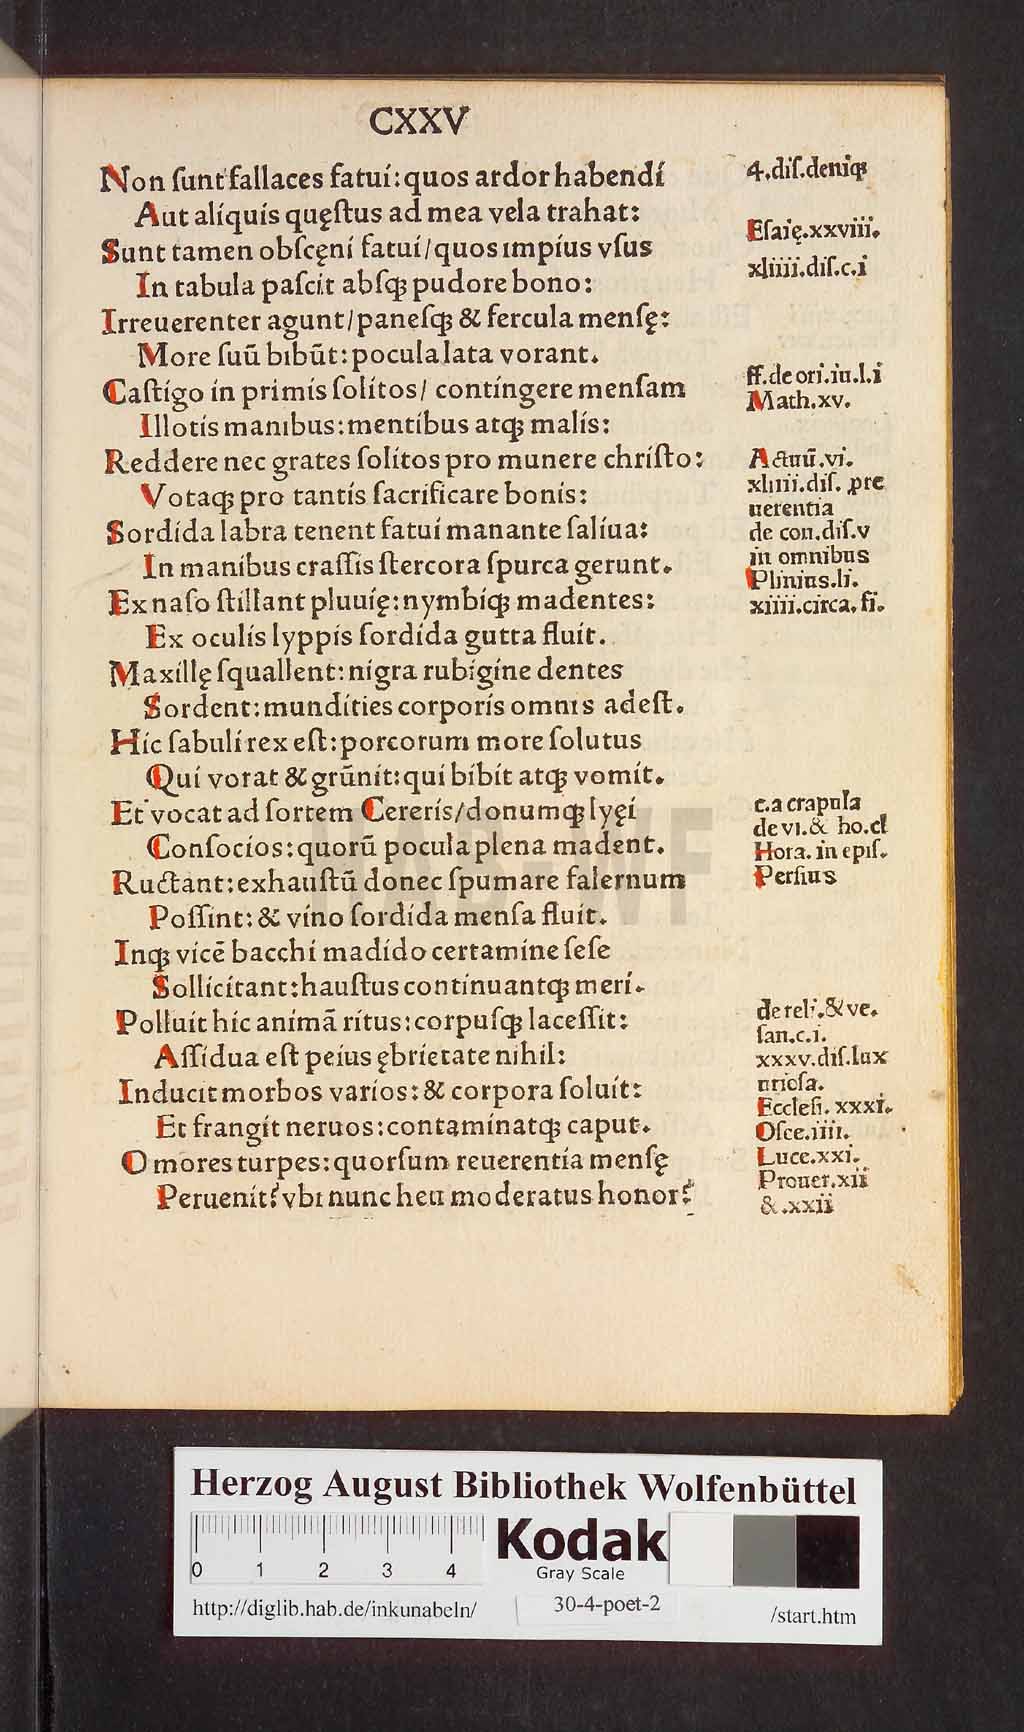 CXXV
Non ſunt fallaces fatui: quos ardor habendi
Aut aliquis quęſtus ad mea vela trahat:
Sunt tamen obſcęni fatui/quos impius vſus
In tabula paſcit abſqꝫ pudore bono:
Irreuerenter agunt/paneſqꝫ & fercula menſę:
More ſuū bibūt: pocula lata vorant.
Caſtigo in primis ſolitos/ contingere menſam
Illotis manibus: mentibus atqꝫ malis:
Reddere nec grates ſolitos pro munere chriſto:
Votaqꝫ pro tantis ſacrificare bonis:
Sordida labra tenent fatui manante ſaliua:
In manibus craſſis ſtercora ſpurca gerunt.
Ex naſo ſtillant pluuię: nymbiqꝫ madentes:
Ex oculis lyppis ſordida gutta fluit.
Maxillę ſquallent: nigra rubigine dentes
Sordent: mundities corporis omnis adeſt.
Hic ſabuli rex eſt: porcorum more ſolutus
Qui vorat & grūnit: qui bibit atqꝫ vomit.
Et vocat ad ſortem Cereris/donumqꝫ lyęi
Conſocios: quorū pocula plena madent.
Ructant: exhauſtū donec ſpumare falernum
Poſſint: & vino ſordida menſa fluit.
Inqꝫ vicē bacchi madido certamine ſeſe
Sollicitant: hauſtus continuantqꝫ meri.
Polluit hic animā ritus: corpuſqꝫ laceſſit:
Aſſidua eſt peius ębrietate nihil:
Inducit morbos varios: & corpora ſoluit:
Et frangit neruos: contaminatqꝫ caput.
O mores turpes: quorſum reuerentia menſę
Peruenit? vbi nunc heu moderatus honor?
4.diſ.deniqꝫ
Eſaię.xxviii.
xliiii.diſ.c.i
ff.de ori.iu.l.i
Math.xv.
Actuū.vi.
xliiii.diſ. ꝓre
uerentia
de con.diſ.v
in omnibus
Plinius.li.
xiiii.circa.fi.
c.a crapula
de vi.& ho.cl
Hora. in epiſ.
Perſius
de reli.& ve.
ſan.c.i.
xxxv.diſ.lux
urioſa.
Eccleſi. xxxi.
Oſee.iiii.
Luce.xxi.
Prouer.xii
&.xxii
HAB-WF
Herzog August Bibliothek Wolfenbüttel
0 1 2 3 4
Kodak
Gray Scale
http://diglib.hab.de/inkunabeln/
30-4-poet-2
/start.htm